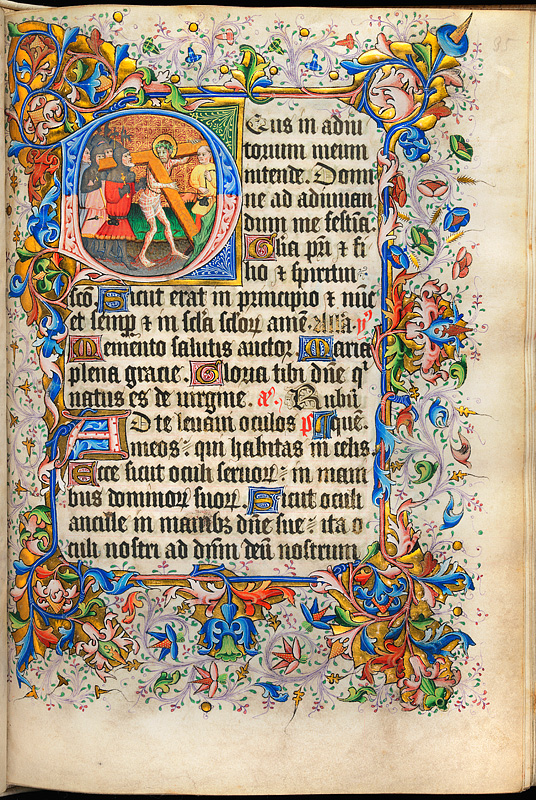 Deus in adiu
torium meum
intende. Domi
ne ad adiuuan
dum me festīa.
Glīa pr̄i & fi
lio & spiritui
scō. Sicut erat in principio & nūc
et semp̄ & in sclā sclor̄ amē. Allā. ps̄
Memento salutis auctor. Maria
plena gracie. Gloria tibi dn̄e qͥ
natus es de uirgine. a. Rubū
Ad te leuaui oculos p̄s quē
meos: qui habitas in celis.
Ecce sicut oculi seruor̄: in mani
bus dominor̄ suor̄. Sicut oculi
ancille in manibꝫ dn̄e sue: ita o
culi nostri ad dn̄m deū nostrum
95